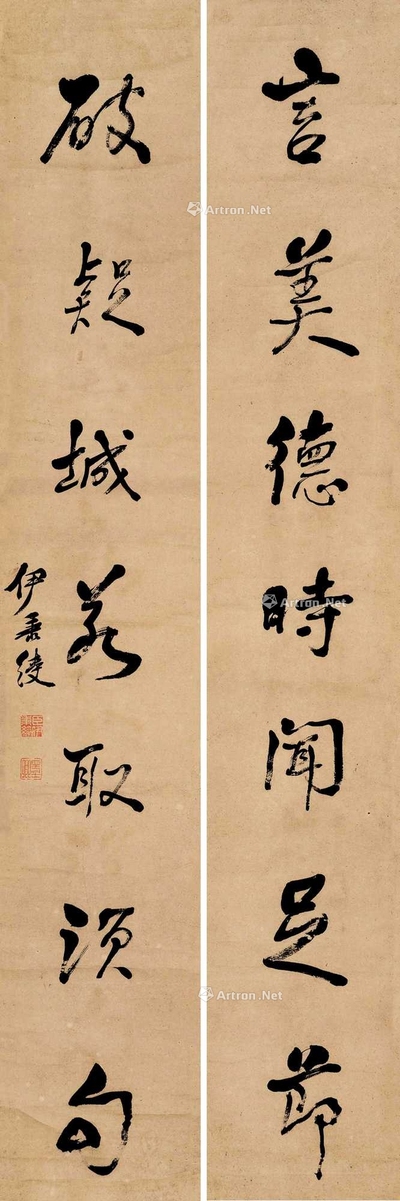 言美德時聞足節
破疑城若取須句
伊秉綬
Artron.Net
Artron.Net
Artron.Net
Artron.Net